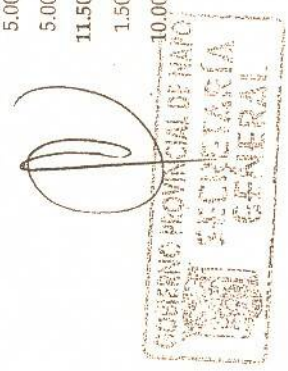 5.00
5.00
11.50
1.50
10.00
GOBIERNO PROVINCIAL DE NAPO
SECRETARÍA
GENERAL